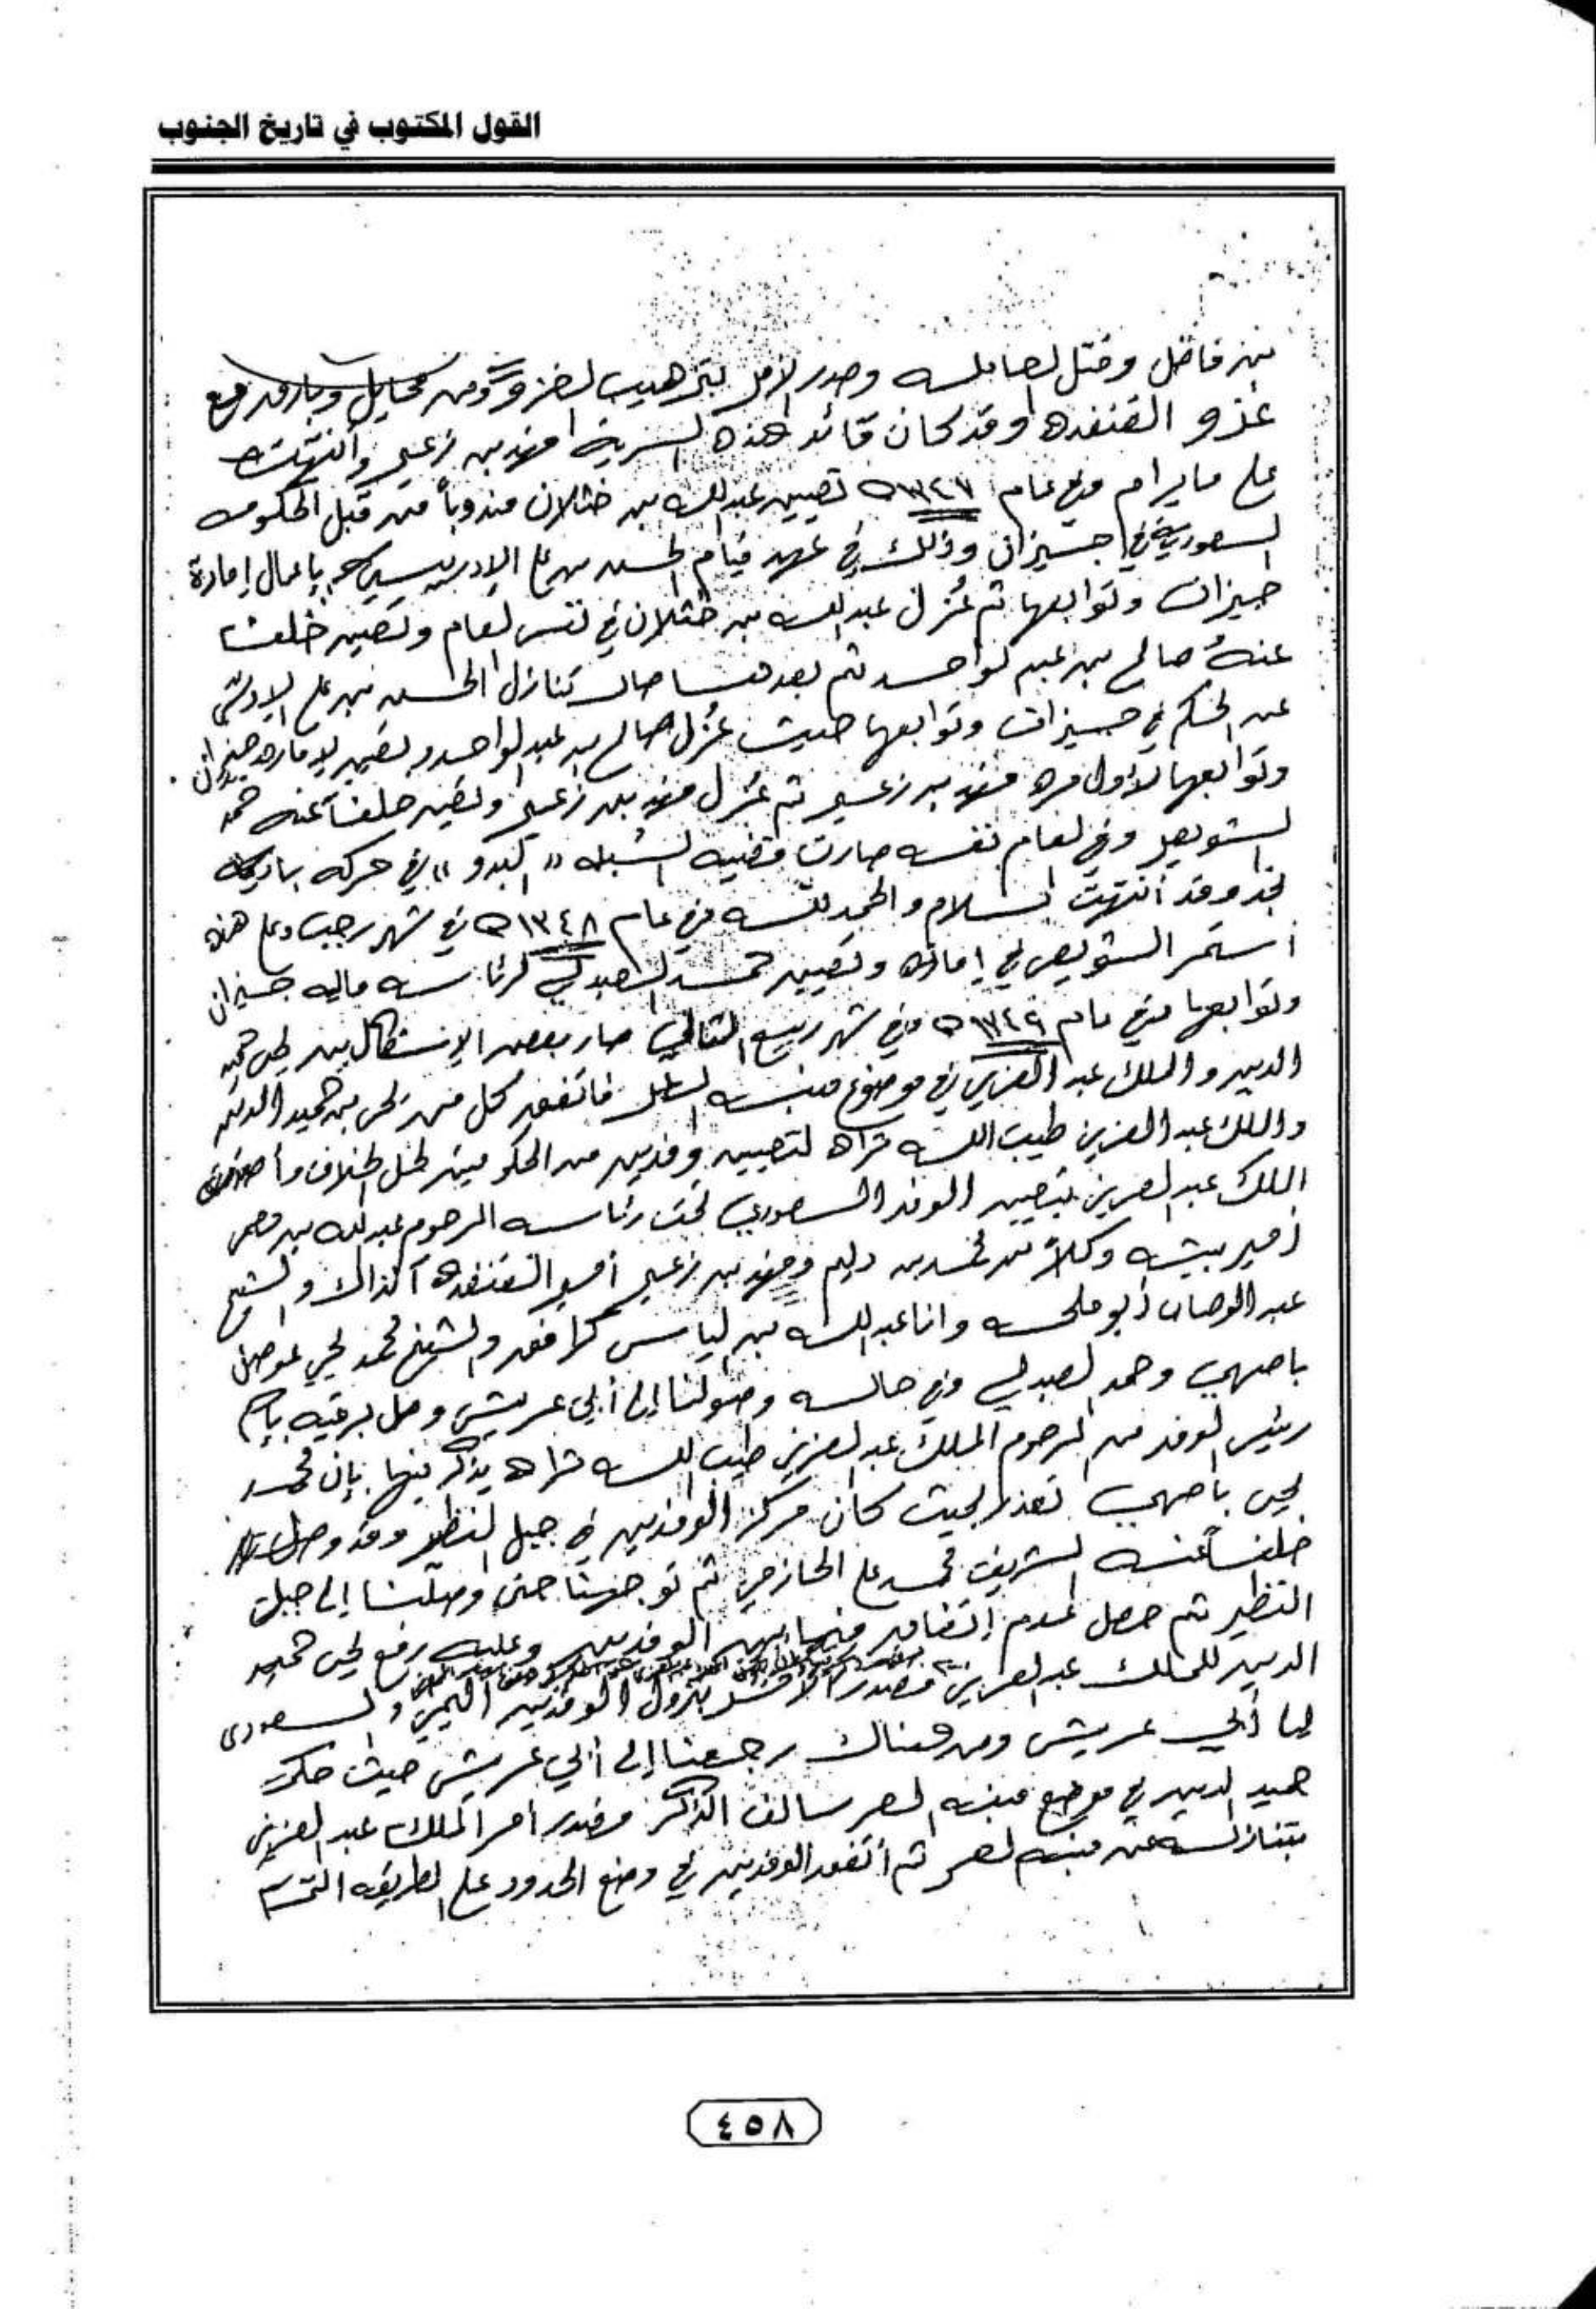 القول المكتوب في تاريخ الجنوب
بن فاضل وقتل لعامله وصدر الأمر بترهيب لغزو ومن محايل وبارق مع
غزو القنفده وقد كان قائد هذه السرية فهد بن زعير وأنتهت
على ما يرام وفي عام ١٣٤٧ه تعيين عبدالله بن خثلان مندوباً من قبل الحكومه
السعودية في جيزان وذلك في عهد قيام الحسن بن علي الإدريسي بإعمال إمارة
جيزان وتوابعها ثم عُزل عبدالله بن خثلان في نفس العام وتعين خلفا
عنهُ صالح بن عبدالواحد ثم بعدها صار تنازل الحسن بن علي الإدريسي
عن الحكم في جيزان وتوابعها حيث عُزل صالح بن عبدالواحد وتعين لإماره جيزان
وتوابعها لأول مره فهد بن زعير ثم عُزل فهد بن زعير وتعين خلفاً عنه حمد
الشويعر وفي العام نفسه صارت قضيه الشبله "البدو" في حركه باديه
نجد وقد أنتهت بسلام والحمدلله وفي عام ١٣٤٨ه في شهر رجب وعلى هذه
أستمر الشويعر في إمارته وتعيين حمد العبدلي لرئاسه ماليه جيزان
وتوابعها وفي عام ١٣٤٩ه وفي شهر ربيع الثاني صار بعض الإستشكال بين يحي حميد
الدين والملك عبدالعزيز في موضوع منبه فاتفق كل من يحي بن حميد الدين
والملك عبدالعزيز طيب الله ثراه لتعيين وفدين من الحكومتين لحل الخلاف
الملك عبدالعزيز بتعيين الوفد السعودي تحت رئاسه المرحوم عبدالله بن معمر
أمير بيشه وكلاً من محمد بن دليم وفهد بن زعير أمير القنفده آنذاك والشيخ
عبدالوهاب أبو ملحه وانا عبدالله بن إلياس كرافق والشيخ محمد يحي عوض
باصهي وحمد العبدلي وفي حاله وصولنا إلى أبي عريش وصل برقيه بإسم
رئيس الوفد من المرحوم الملك عبدالعزيز طيب الله ثراه يذكر فيها بإن محمد
يحي باصهي تعذر بحيث كان مركز الوفدين في جبل النظير وقد وصل
خلفاً عنه الشريف محمد علي الحازمي ثم توجهنا حتى وصلنا إلى جبل
النظير ثم حصل لعدم إتفاق فيما بين الوفدين وعليه رفع يحي حميد
الدين للملك عبدالعزيز فصدر الأمر بنزول الوفدين اليمني والسعودي
إلى أبي عريش ومن هناك رجعنا إلى أبي عريش حيث حكم
حميد الدين في موضع منبه سالف الذكر وصدر امر الملك عبدالعزيز
بتنازله عن منبه ثم أتفق الوفدين في وضع الحدود على الطريقه
٤٥٨